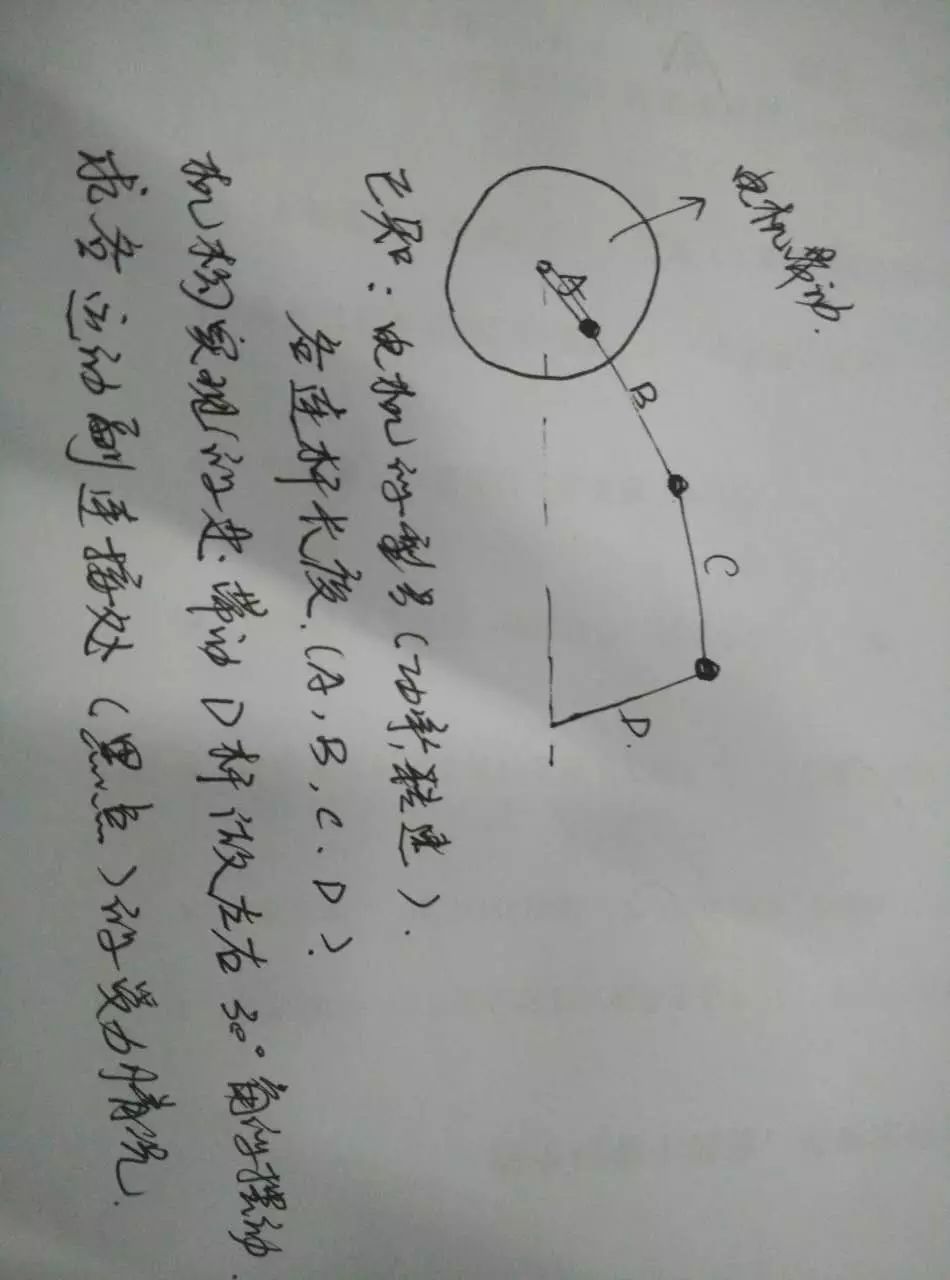 电机驱动.
A
B
C
D.
已知：电机的型号(功率,转速).
各连杆长度.(A,B,C.D)
机构实现的是.带动D杆做左右30°角的摆动.
求各运动副连接处(黑点)的受力情况.